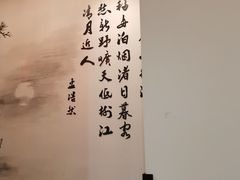 移舟泊烟渚日暮客
愁新野曠天低树江
清月近人
孟浩然